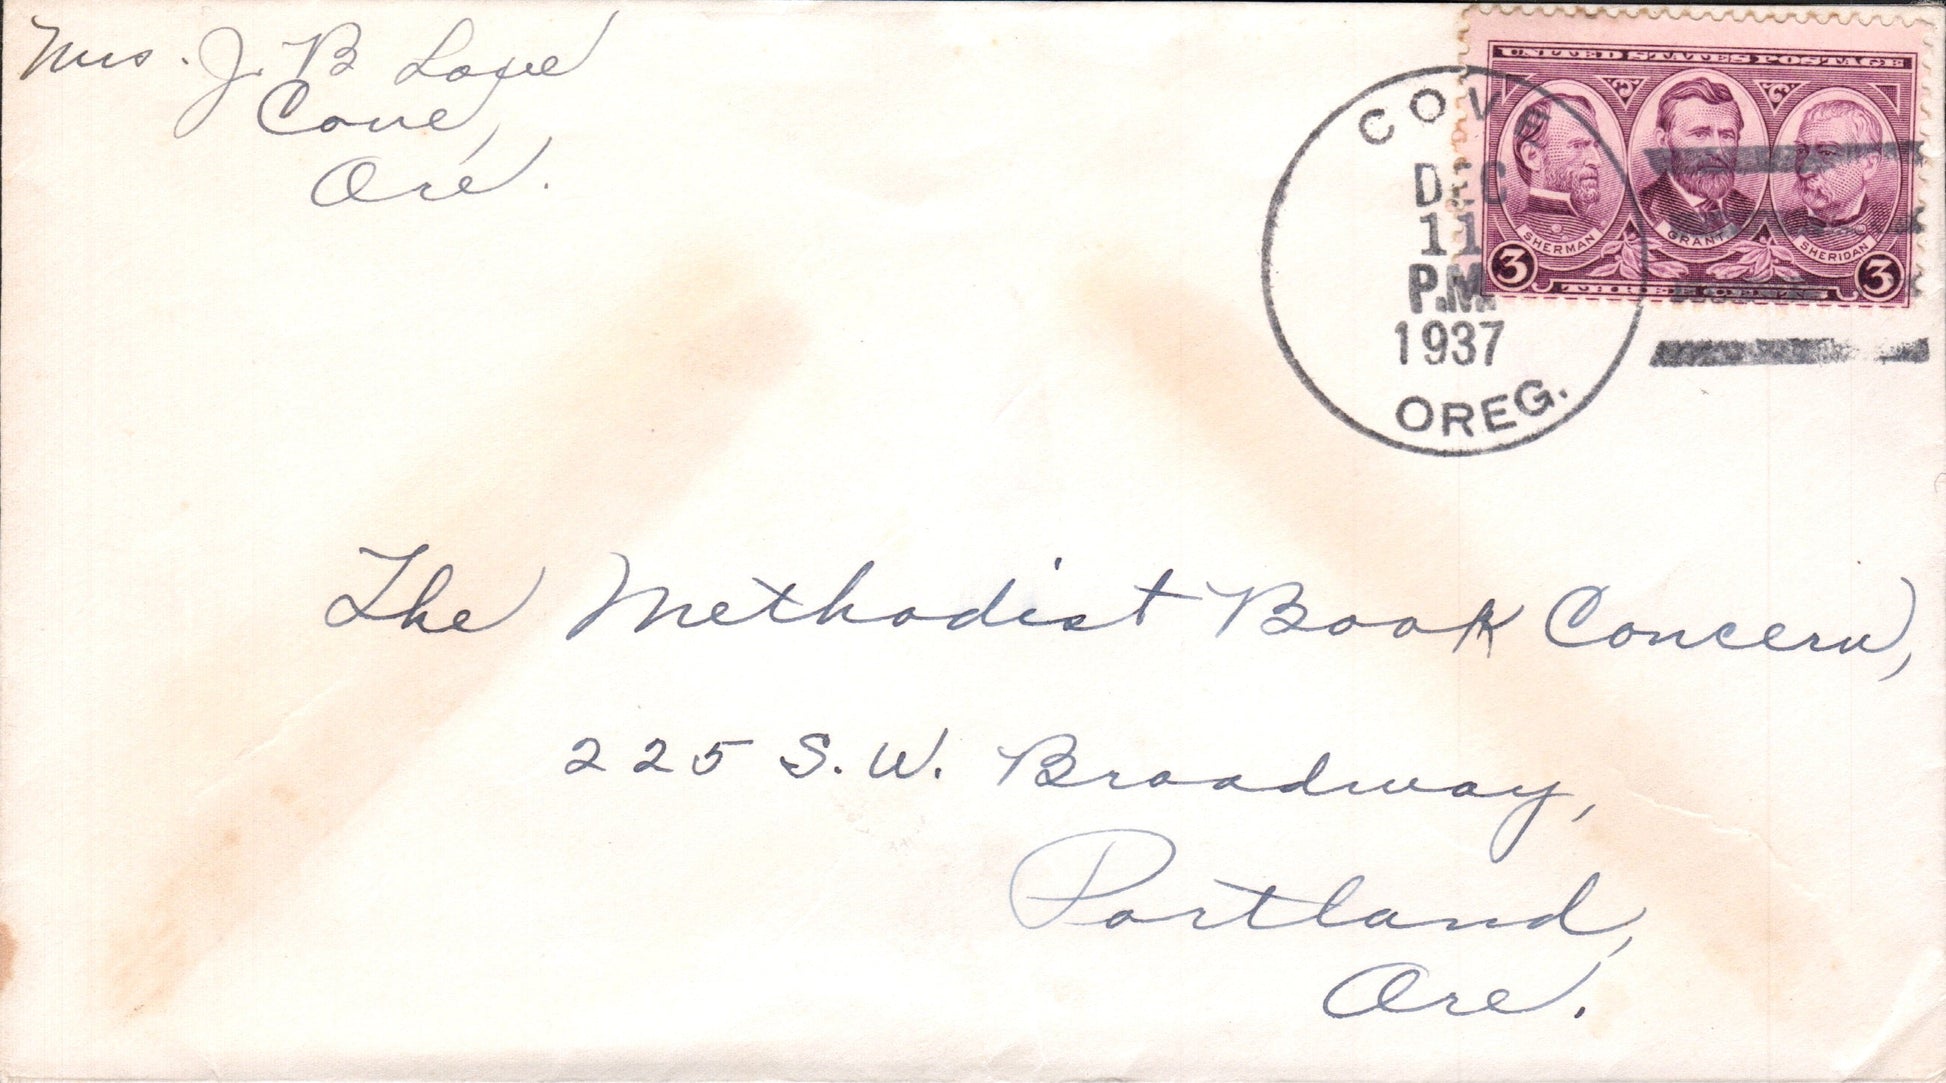 Mrs. J. B
Cove,
Ore.
UNITED STATES POSTAGE
SHERMAN
GRANT
SHERIDAN
3
3
THREE CENTS
COVE
DEC
11
P.M.
1937
OREG.
The Methodist Book Concern,
225 S. W. Broadway,
Portland,
Ore.